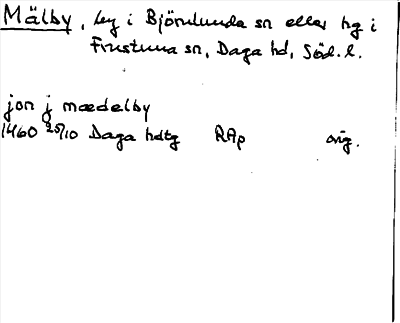 Mälby, by i Björnlunda sn eller hg i
Frustuna sn, Daga hd, Söd. l.
jon j mædelby
1460 25/10 Daga hdtg RAp orig.